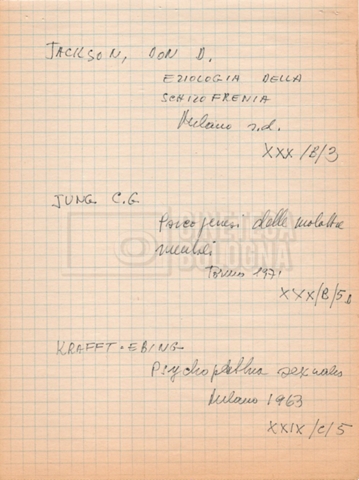 JACKSON, DON D.
EZIOLOGIA DELLA
SCHIZOFRENIA
Milano s.d.
XXX/B/3
JUNG C.G
Psicogenesi delle malattie
mentali
Torino 1971
XXX/B/5
KRAFFT-EBING
Psychopathia sexualis
Milano 1963
XXIX/C/5